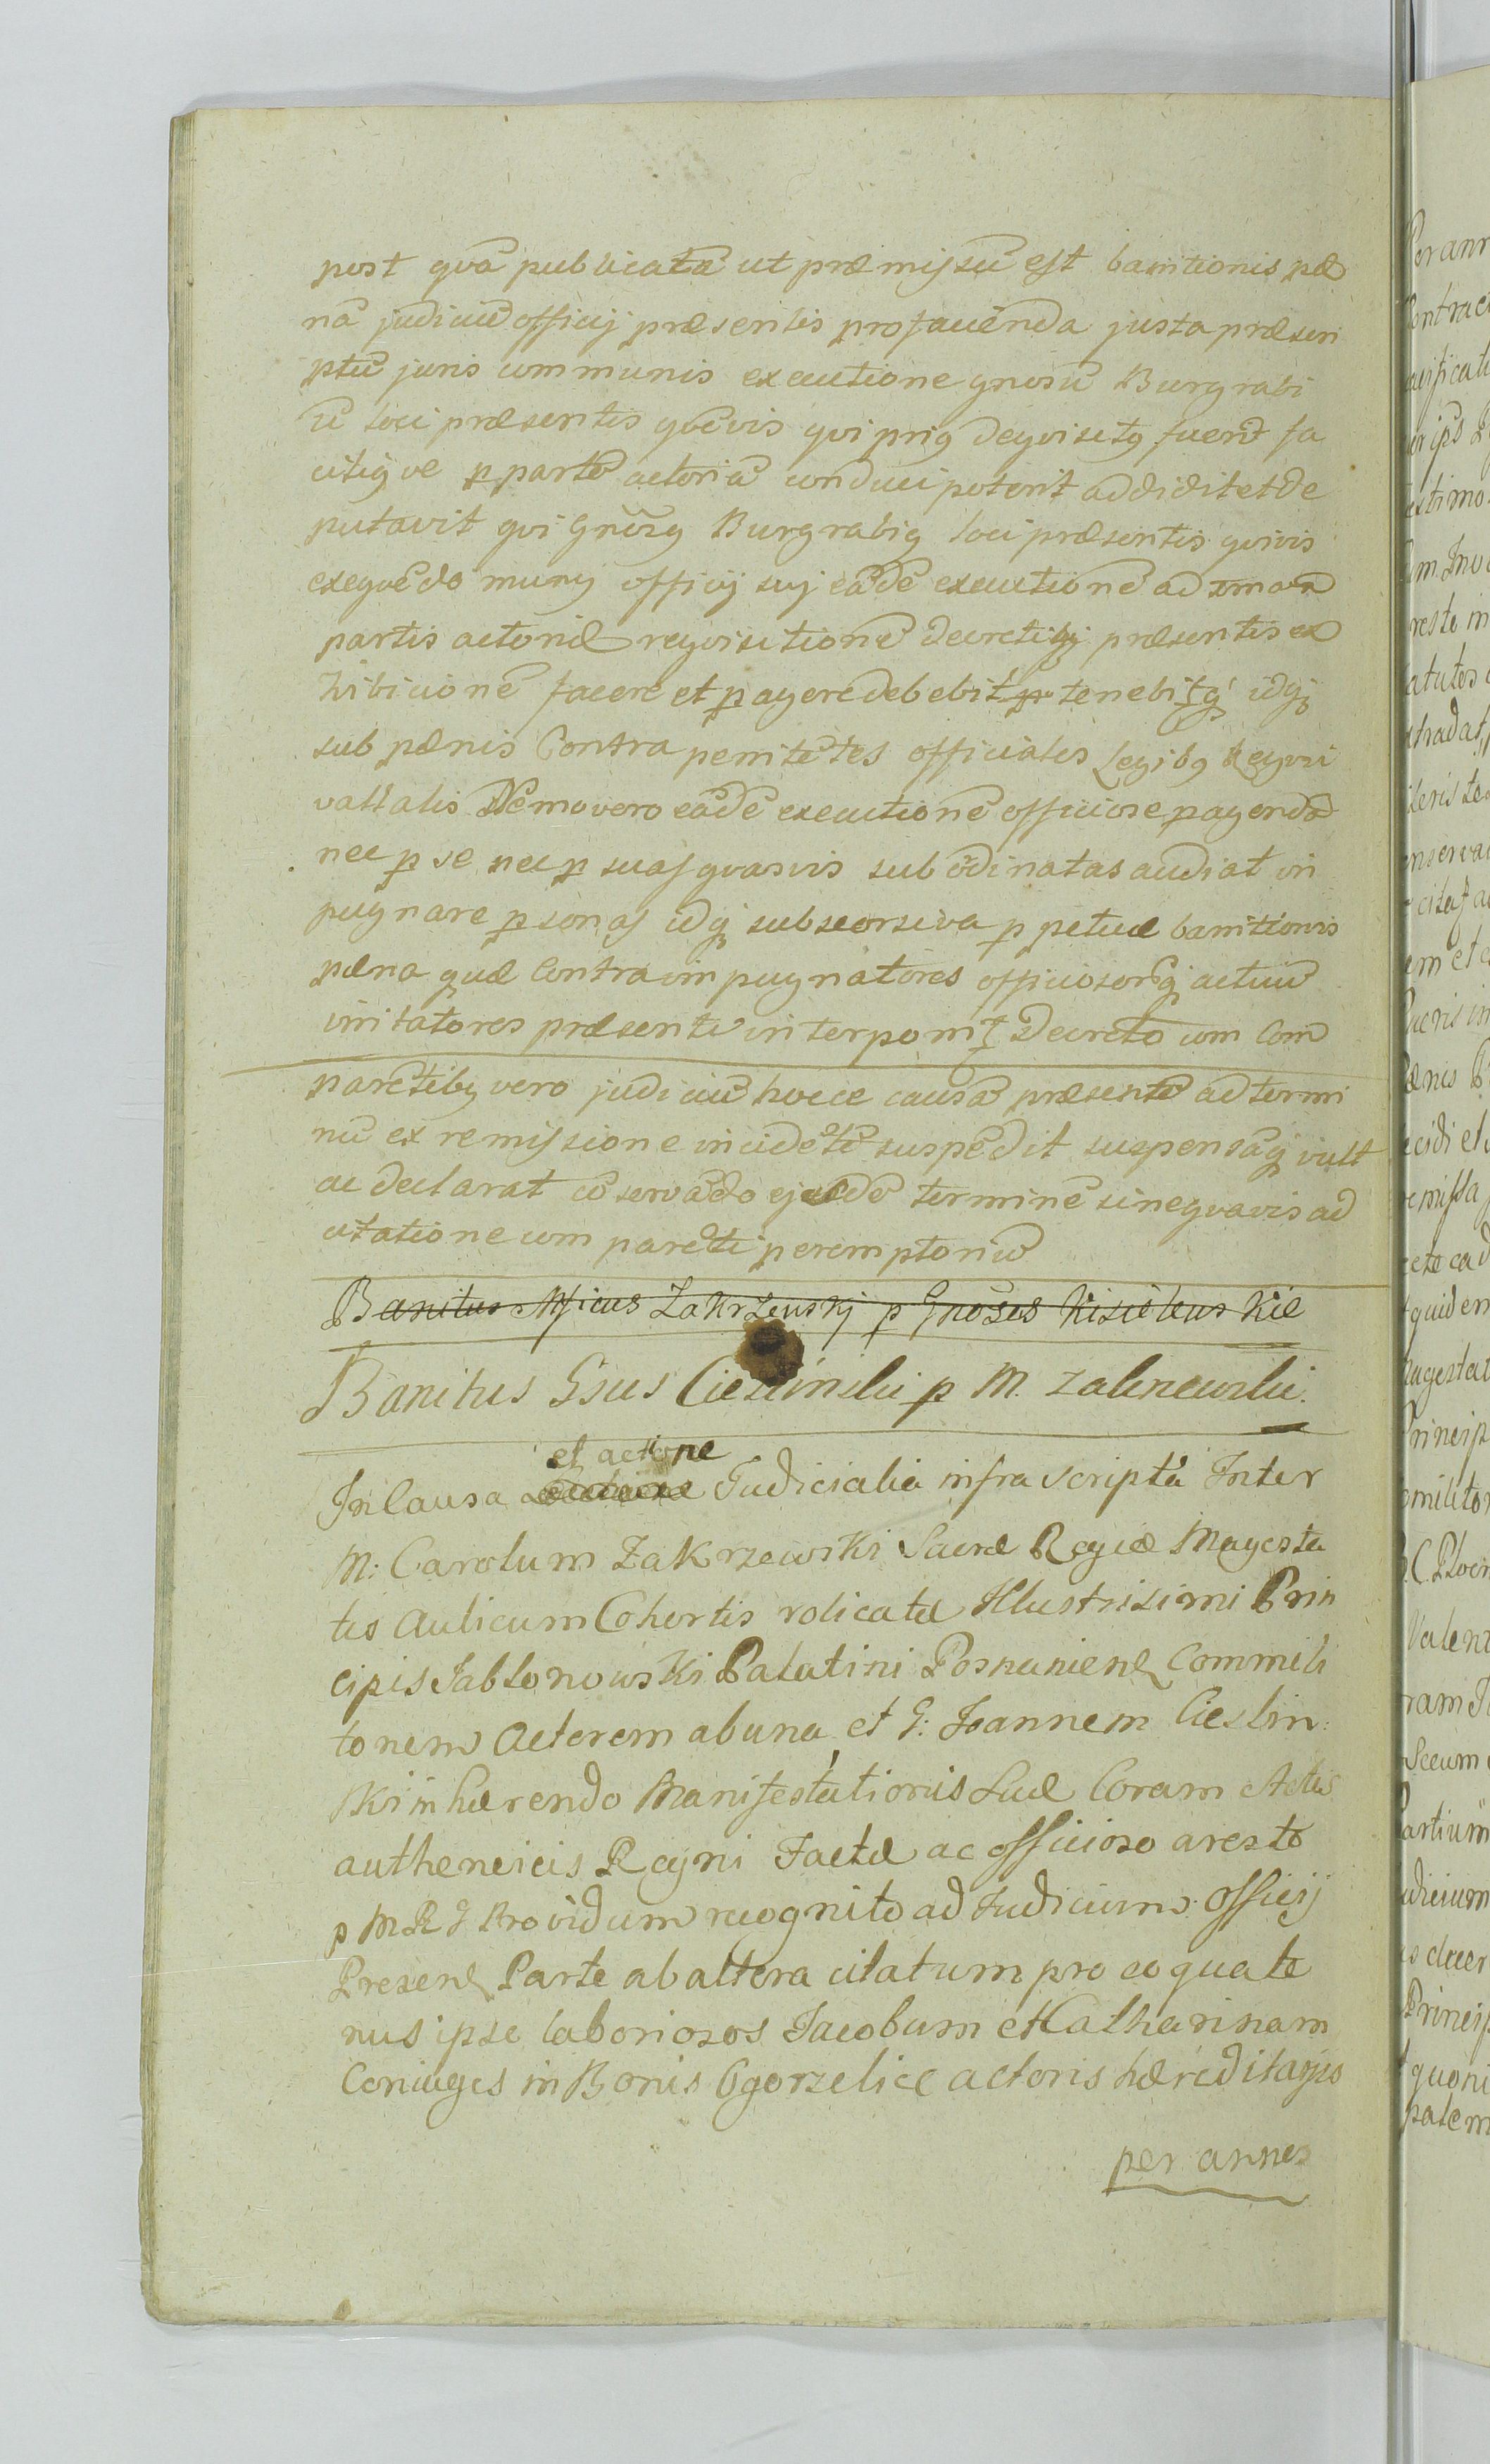 post qvã publicatã ut præmissũ est banitionis pæ
nã judiciũ officij præsentis pro faciẽnda justa præscri
ptũ juris communis executione gnosũ Burgrabi
ũ loci præsentis qvẽvis qvi prig deqvisitg fuerit fa
cilig ve p partẽ actoriã conduci poterit addidit et de
putavit qvi Gnosg Burgrabig loci præsentis qvivis
exeqvẽdo munij officij suj eãdẽ executionẽ ad
partis actoriæ reqvisitionẽ decretiqj præsentis ex
hibicionẽ facere et pagere debebit tenebitqj idqj
sub pænis Contra penitẽtes officiales Legibg Regni
vallatis Nẽmo vero eãdẽ executionẽ officiose pagendã
nec p se nec p suas qvasvis subõdinatas audiat im
pugnare psonas idqj sub seorsiva p petuæ banitionis
pæna quæ Contra impugnatores officiosorũqj actuũ
irritatores præsenti interponit Decreto com Com
parẽtibg vero judiciũ hocce causã præsentẽ ad termi
nũ ex remissione incidẽtẽ suspẽdit suspensãqj vult
ac declarat cõservãdo ejusdẽ terminẽ sine qvavis ad
citatione com parẽdi peremptoriũ
Banitus Mficus Zakrzewskj p Gnosos Kisielewskie
Banitus Gsus Cieslinski p M. Zakrzewski.
et actione
In Causa Judicialia infra scripta Inter
M: Carolum Zakrzewski Sacræ Regiæ Magesta
tis Aulicum Cohortis rolicatæ Illustrisimi Prin
cipis Jablonowski Palatini Posnaniens Commili
tonem Actorem ab una et G: Joannem Cieslin:
ski inhærendo Manifestationis suæ Coram Actis
autheneicis Regni Factæ ac officioso aresto
p M R G Providum recognito ad Judicium Officij
Presens Parte ab altera citatum pro eo quate
nus ipse laboriosos Jacobum et Catharinam
Coniuges in Bonis Ogorzelice actoris hæreditarijs
per annos